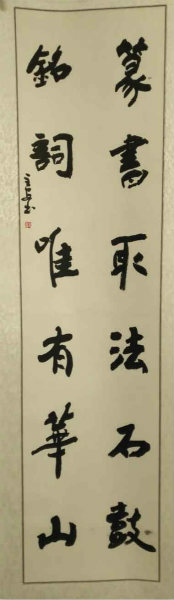 篆書取法石鼓
銘詞唯有華山